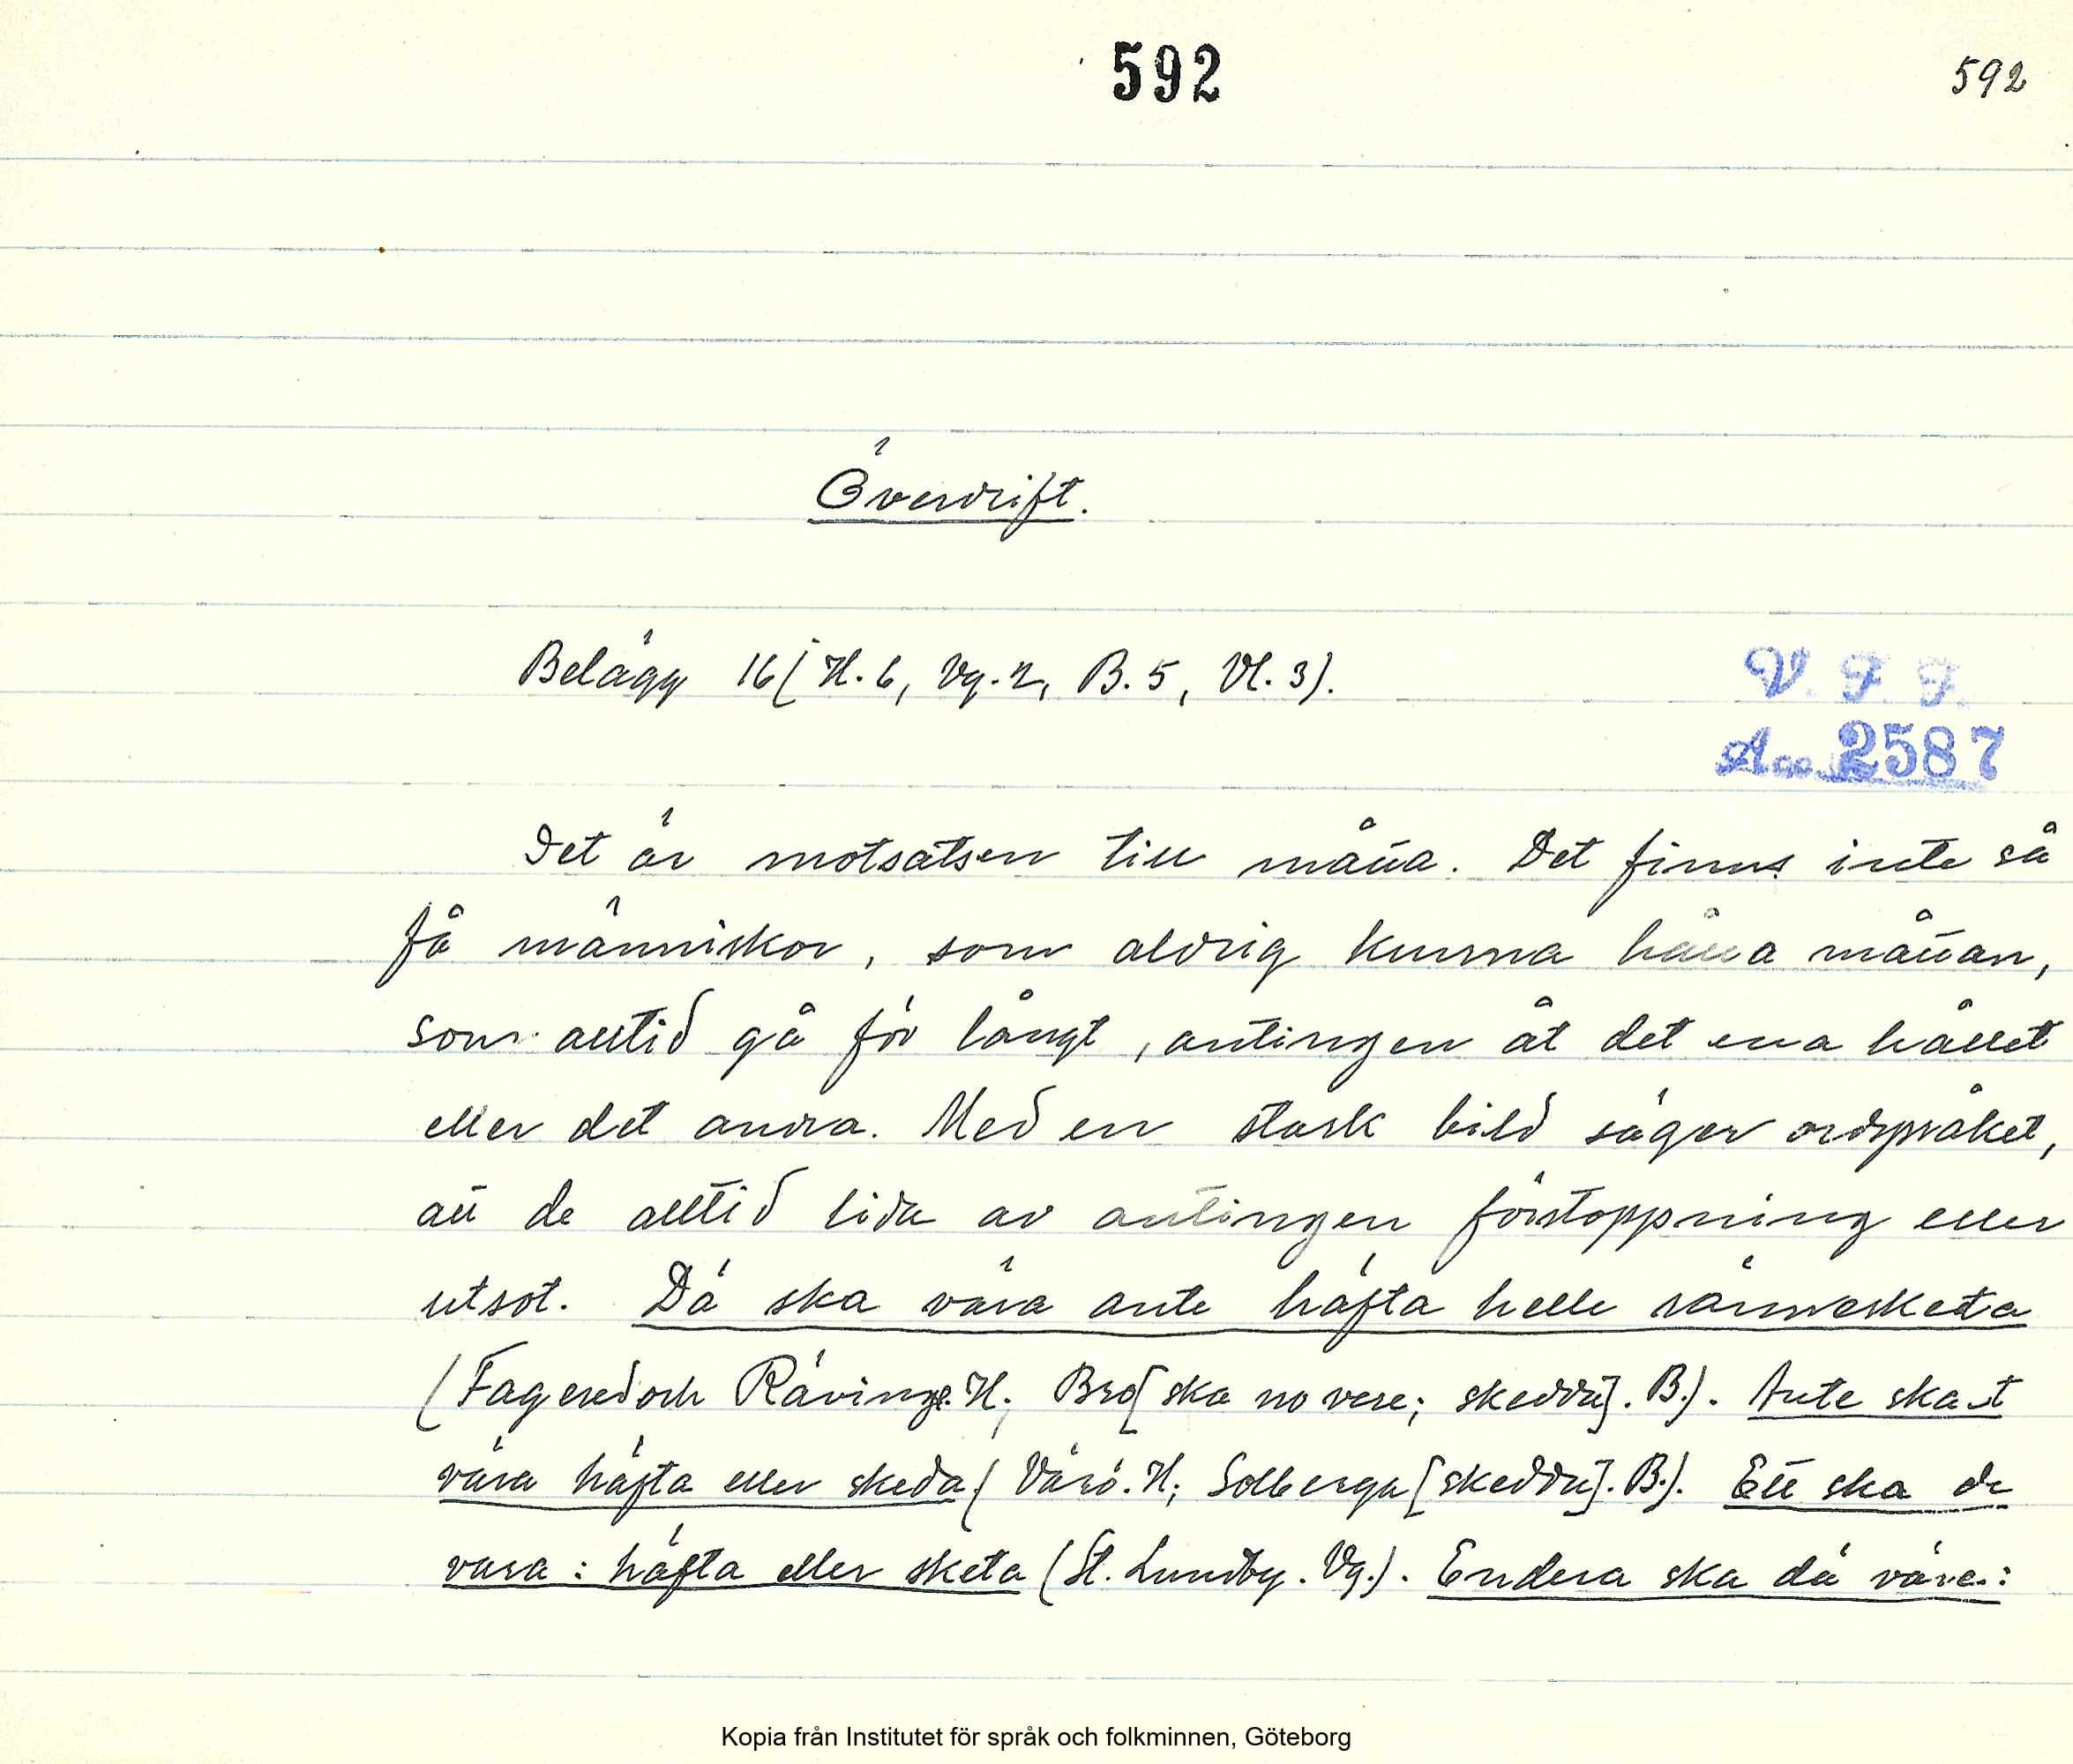 592
592
Överdrift.
Belägg 16 (H. 6, Vg. 2, B. 5, Vl. 3).
V. F. F.
Acc. 2587
Det är motsatsen till måtta. Det finns inte så
få människor, som aldrig kunna hålla måttan,
som alltid gå för långt, antingen åt det ena hållet
eller det andra. Med en stark bild säger ordspråket,
att de alltid lida av antingen förstoppning eller
utsot. Dä ska våra ante häfta helle rännesketa
(Fagered och Rävinge. H; Bro [ska no vere; skeddu]. B.). Ante ska-t
våra häfta eller skeda (Värö. H; Solberga [skeddu]. B.). Ett ska de
vara: häfta eller sketa (St. Lundby. Vg.). Endera ska dä våre:
Kopia från Institutet för språk och folkminnen, Göteborg